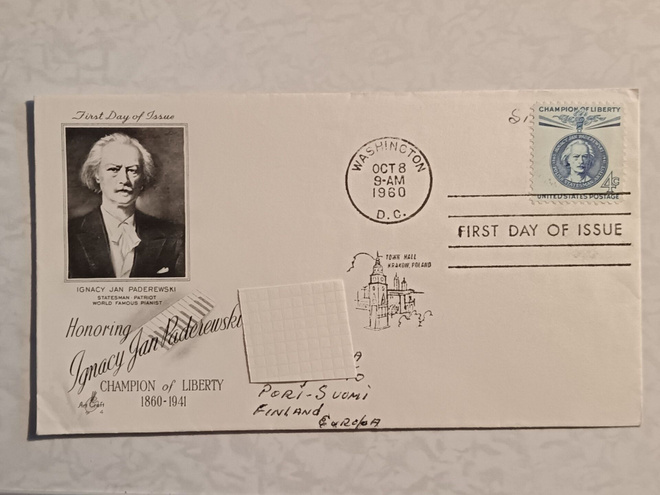 First Day of Issue
IGNACY JAN PADEREWSKI
STATESMAN PATRIOT
WORLD FAMOUS PIANIST
Honoring
Ignacy Jan Paderewski
CHAMPION of LIBERTY
1860-1941
Art Craft
WASHINGTON
OCT 8
9-AM
1960
D.C.
CHAMPION OF LIBERTY
4¢
UNITED STATES POSTAGE
FIRST DAY OF ISSUE
TOWN HALL
KRAKOW, POLAND
PORI-SUOMI
FINLAND
EUROPA